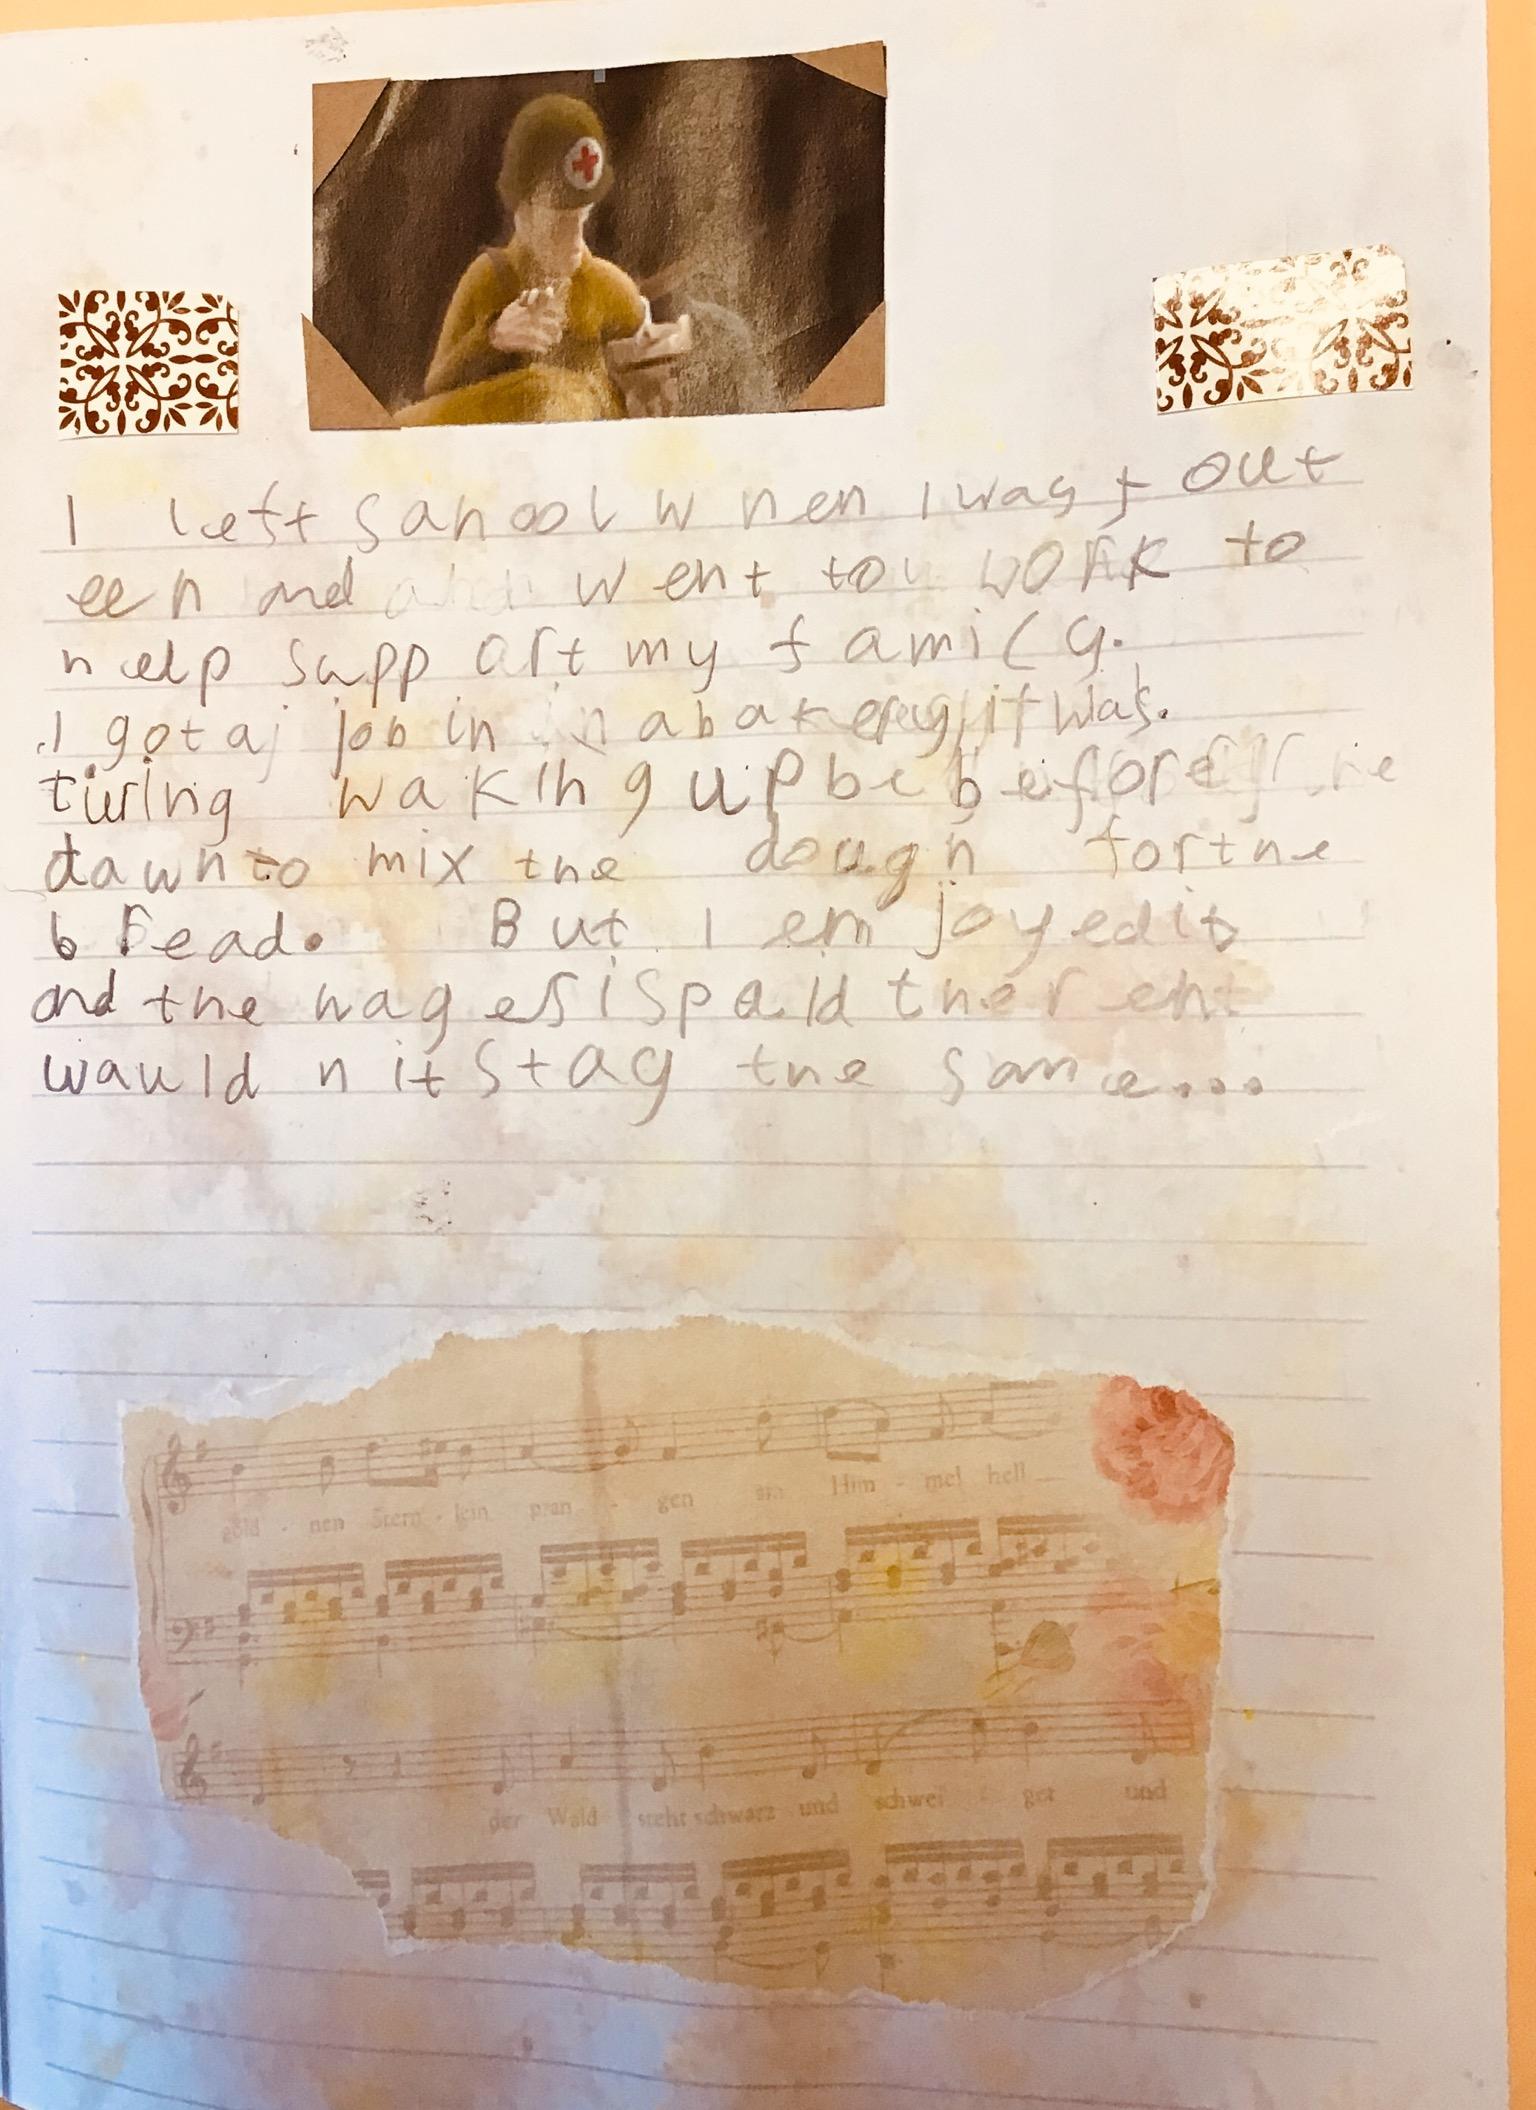 I left sahool when I was fout
een and went to work to
help suppart my family.
I got a job in a bakery it was.
tiring waking up be before the
dawn to mix the dough for the
bread. But I emjoyed it
and the wages i spaid the rent
wauld nit stay the same...
gold - nen Stern - lein pran - gen am Him - mel hell
der Wald steht schwarz und schwei - get und